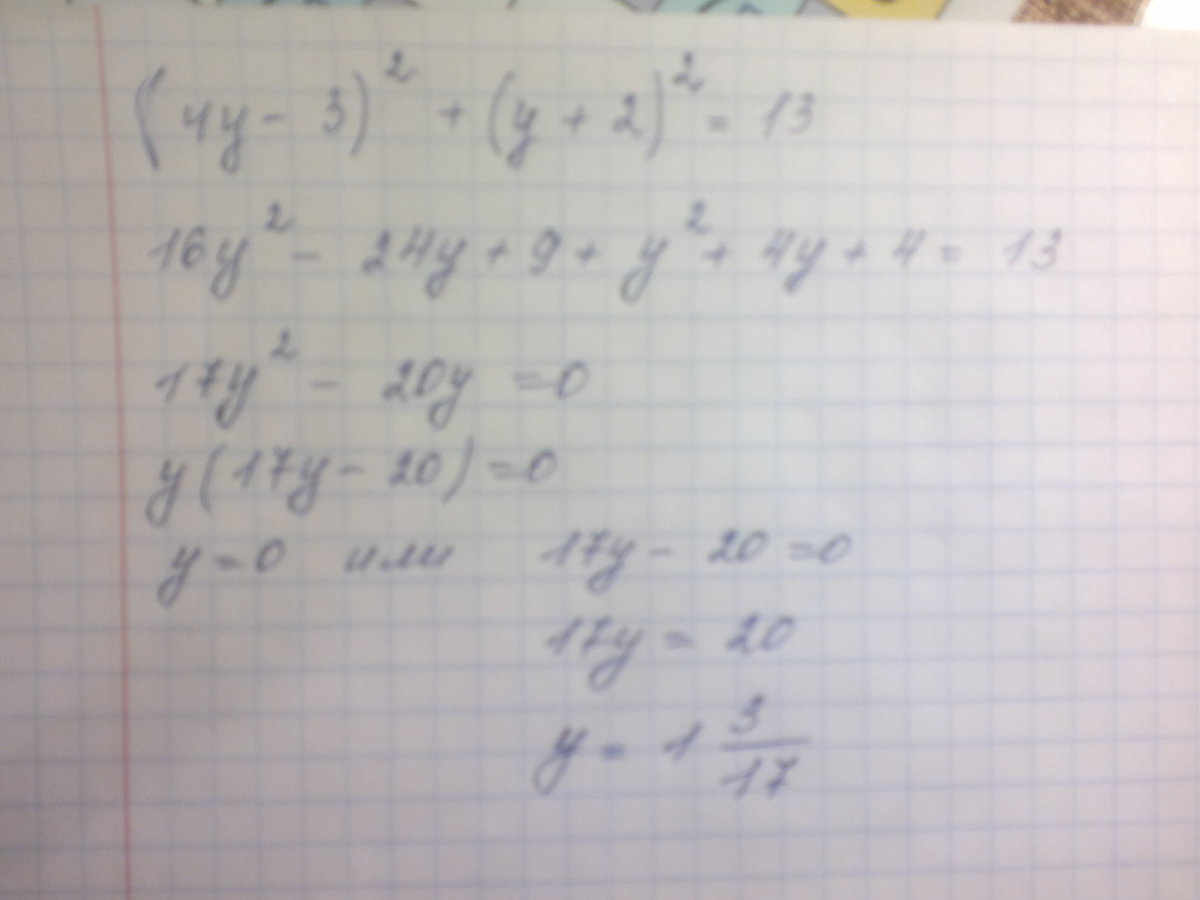 (4y - 3)² + (y + 2)² = 13
16y² - 24y + 9 + y² + 4y + 4 = 13
17y² - 20y = 0
y(17y - 20) = 0
y = 0 или 17y - 20 = 0
17y = 20
y = 1 3/17